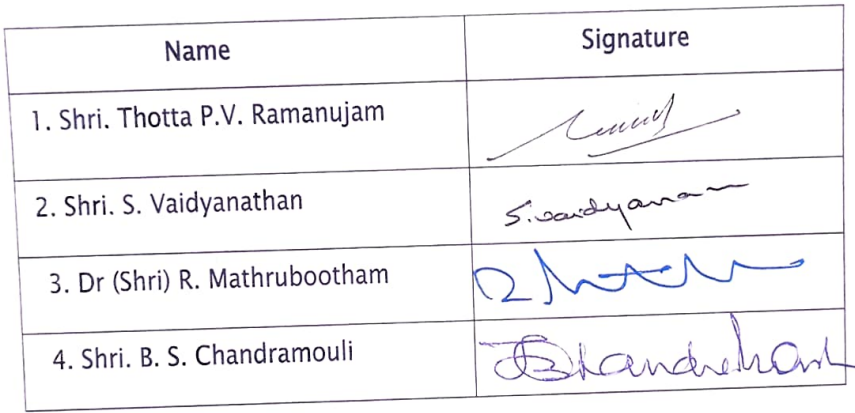 Name Signature
1. Shri. Thotta P.V. Ramanujam
2. Shri. S. Vaidyanathan S. Vaidyanathan
3. Dr (Shri) R. Mathrubootham
4. Shri. B. S. Chandramouli